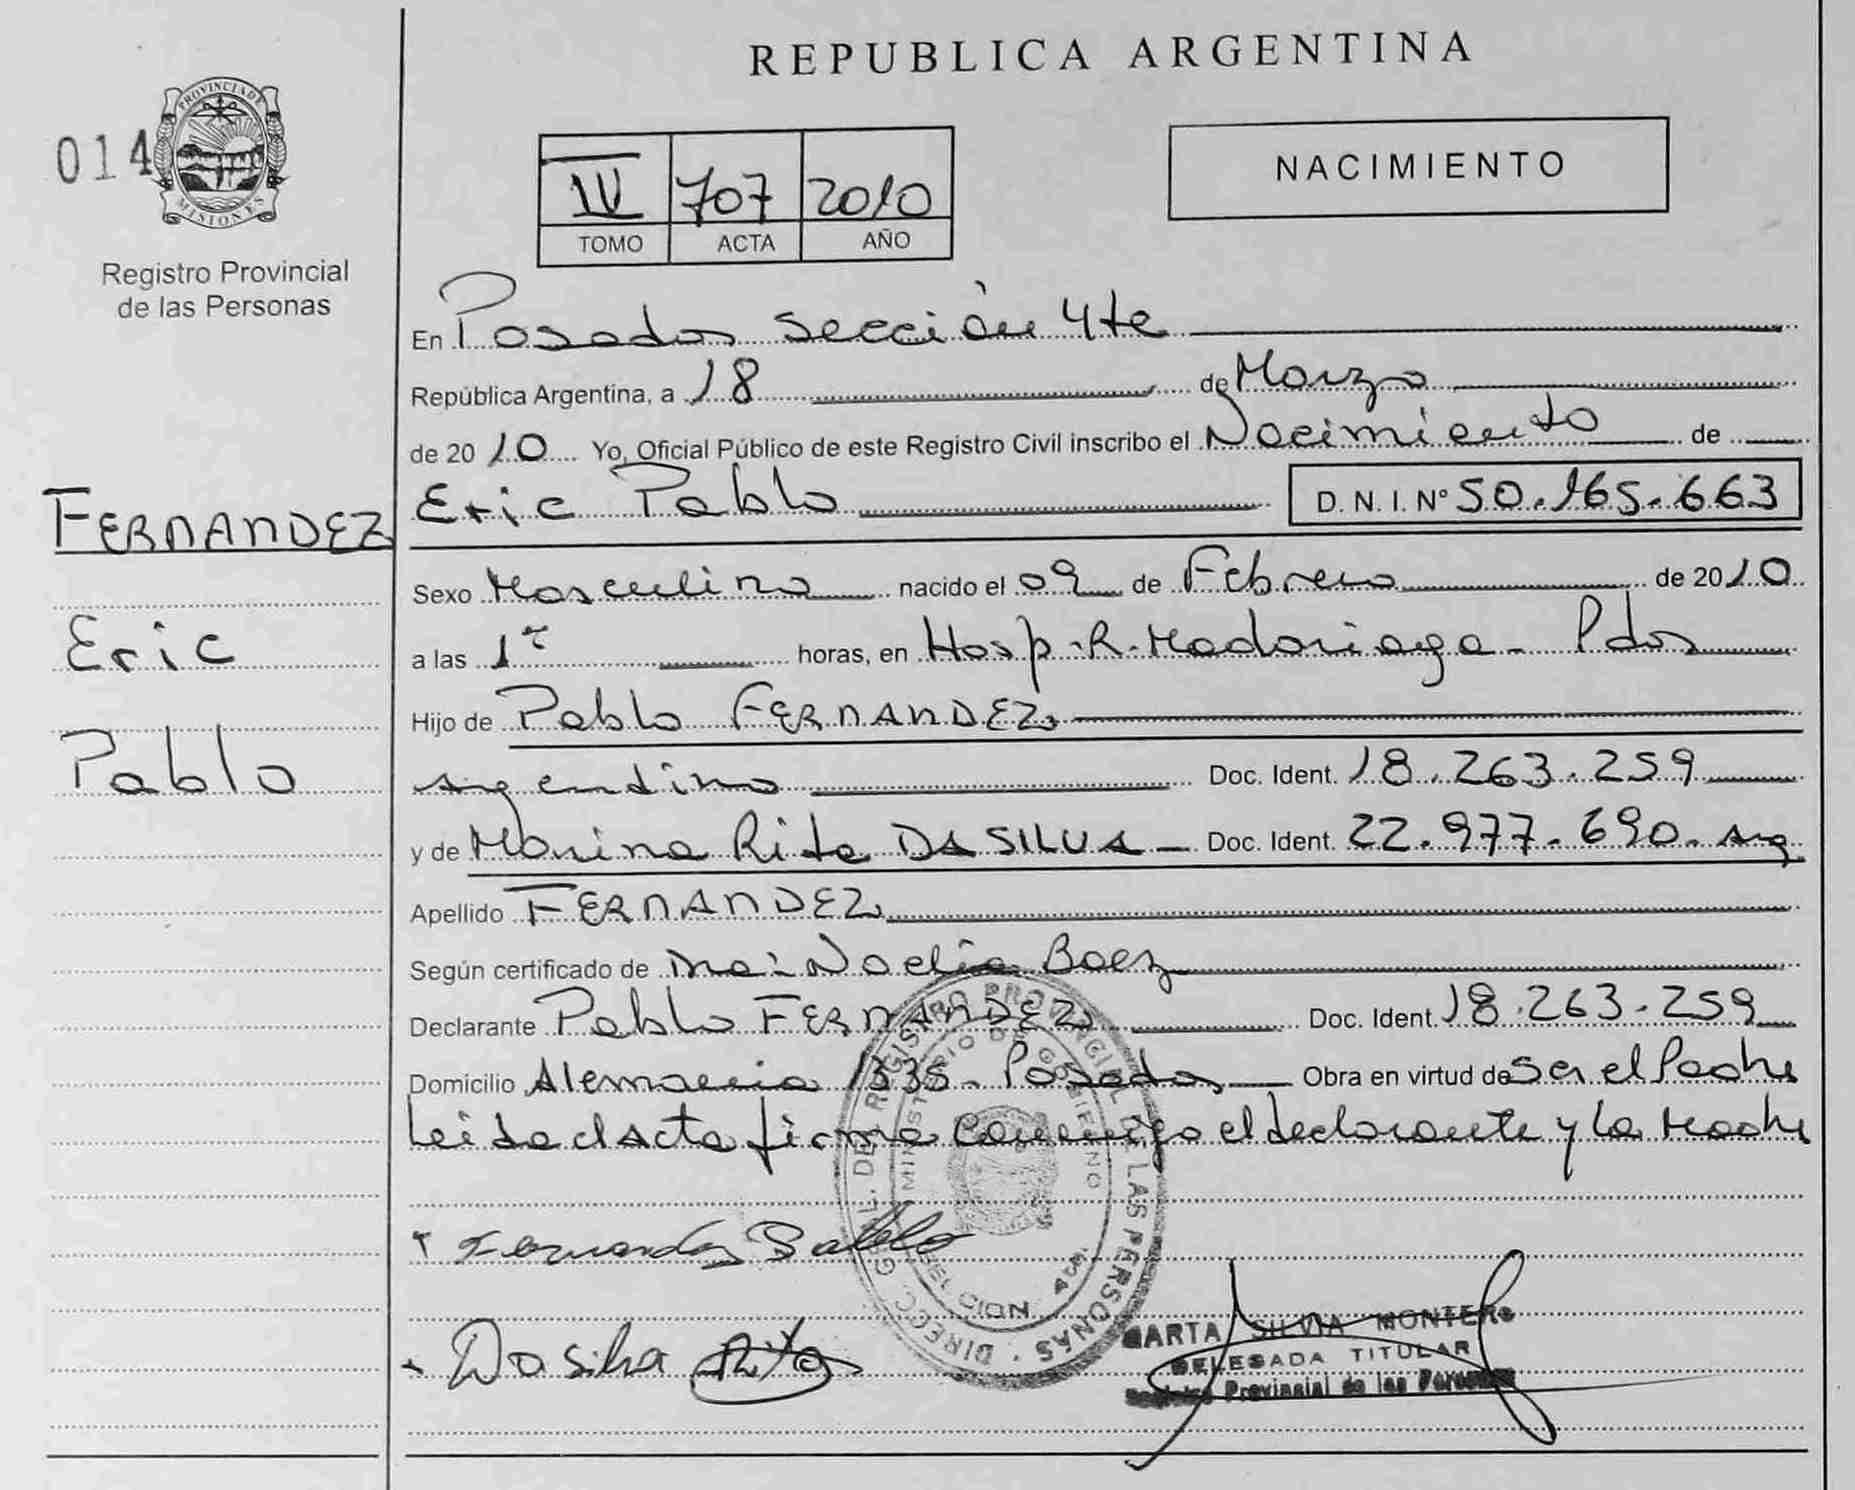 REPUBLICA ARGENTINA
PROVINCIA DE
MISIONES
014
Registro Provincial
de las Personas
NACIMIENTO
IV 707 2010
TOMO ACTA AÑO
En Posadas sección 4ta
República Argentina, a 18 de Marzo
de 2010 Yo, Oficial Público de este Registro Civil inscribo el Nacimiento de
FERNANDEZ
Eric Pablo D. N. I. Nº 50.165.663
Sexo Masculino nacido el 09 de Febrero de 2010
Eric
a las 1 horas, en Hosp. R. Madariaga - Pdas
Hijo de Pablo FERNANDEZ
Pablo
Argentino Doc. Ident. 18.263.259
y de Marina Rita DA SILVA - Doc. Ident. 22.977.690. Arg
Apellido FERNANDEZ
Según certificado de Noelia Baez
Declarante Pablo FERNANDEZ Doc. Ident. 18.263.259
Domicilio Alemania 1335 - Posadas Obra en virtud de ser el Padre
Leida el Acta firma conmigo el declarante y la Madre
Fernandez Pablo
Da silva Rita
DIRECC. GRAL. DEL REGISTRO PROVINCIAL DE LAS PERSONAS
MINISTERIO DE GOBIERNO
MARTA SILVIA MONTERO
DELEGADA TITULAR
Registro Provincial de las Personas